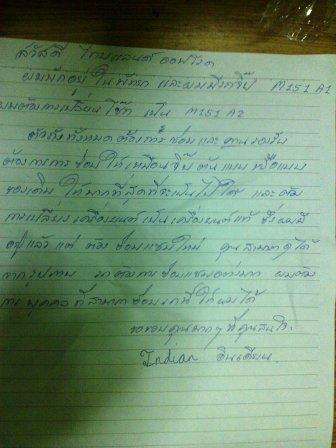 สวัสดี ไทยแลนด์ ออฟโรด
ผมพักอยู่ ในพัทยา และผมมีรถจี๊ป M151 A1
ผมต้องการเปลี่ยน โช๊ก เป็น M151 A2
ตัวถังทั้งหมด ต้องการซ่อม และ คานรองรับ
ต้องการการ ซ่อม ให้เหมือนจี๊ป ต้นแบบ หรือแบบ
ของเดิม ให้มากที่สุดที่จะเป็นไปได้ และต้อง
การเปลี่ยน เครื่องยนต์ เป็น เครื่องยนต์แท้ ซึ่งผมมี
อยู่แล้ว แต่ ต้องซ่อมแซมใหม่ คุณสามารถดูได้
จากรูปภาพ รถต้องการซ่อมแซมอย่างมาก ผมต้อง
การ บุคคล ที่สามารถซ่อมรถที่ ให้ผมได้
ขอขอบคุณมากๆ ที่คุณสนใจ.
Indian อินเดียน